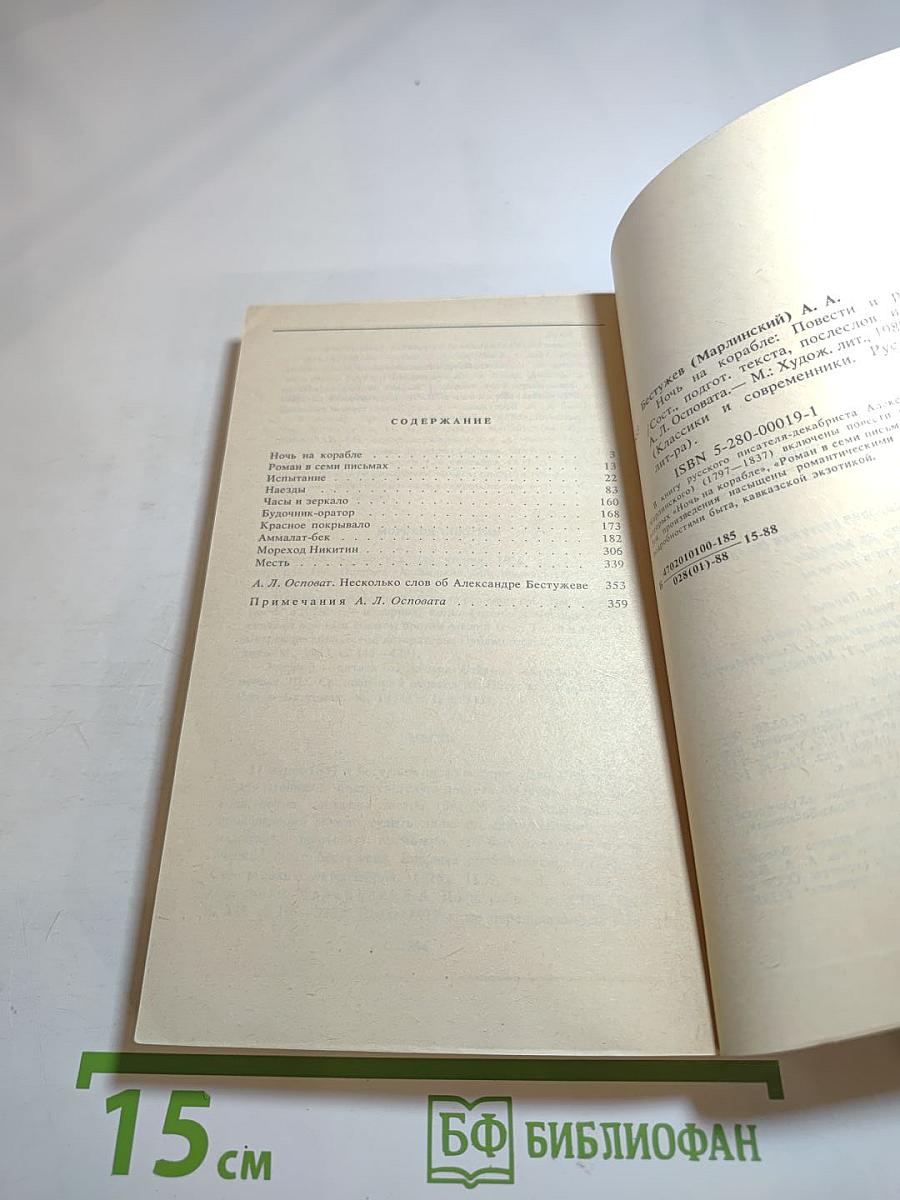 СОДЕРЖАНИЕ
Ночь на корабле . . . . . . . . . . . . . . . . 3
Роман в семи письмах . . . . . . . . . . . . . . 13
Испытание . . . . . . . . . . . . . . . . . . 22
Наезды . . . . . . . . . . . . . . . . . . . 83
Часы и зеркало . . . . . . . . . . . . . . . . 160
Будочник-оратор . . . . . . . . . . . . . . . . 168
Красное покрывало . . . . . . . . . . . . . . . 173
Аммалат-бек . . . . . . . . . . . . . . . . . 182
Мореход Никитин . . . . . . . . . . . . . . . . 306
Месть . . . . . . . . . . . . . . . . . . . . 339
А. Л. Осповат. Несколько слов об Александре Бестужеве 353
Примечания А. Л. Осповата . . . . . . . . . . 359
Бестужев (Марлинский) А. А.
Ночь на корабле: Повести и
/Сост., подгот. текста, послеслов
А. Л. Осповата.— М.: Худож. лит.,
(Классики и современники.
лит-ра).
ISBN 5-280-00019-1
В книгу русского писателя-декабриста
(1797—1837) включены повести
«Ночь на корабле», «Роман в семи
произведения насыщены романтическими
подробностями быта, кавказской экзотикой.
4702010100-185
Б 15-88
028(01)-88
15 см
БФ БИБЛИОФАН